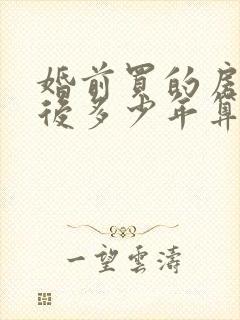 婚前買的房
後多少年算
一望雲濤